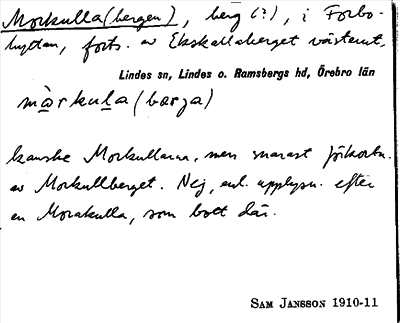 Morkulla (bergen), berg (?), i Forbo-
hyttan, forts. av Ekskallaberget västerut.
Lindes sn, Lindes o. Ramsbergs hd, Örebro län
màrkula (bærja)
kanske Morkullarna, men snarast förkortn.
av Morkullberget. Nej, enl. upplysn. efter
en Morakulla, som bott där.
SAM JANSSON 1910-11